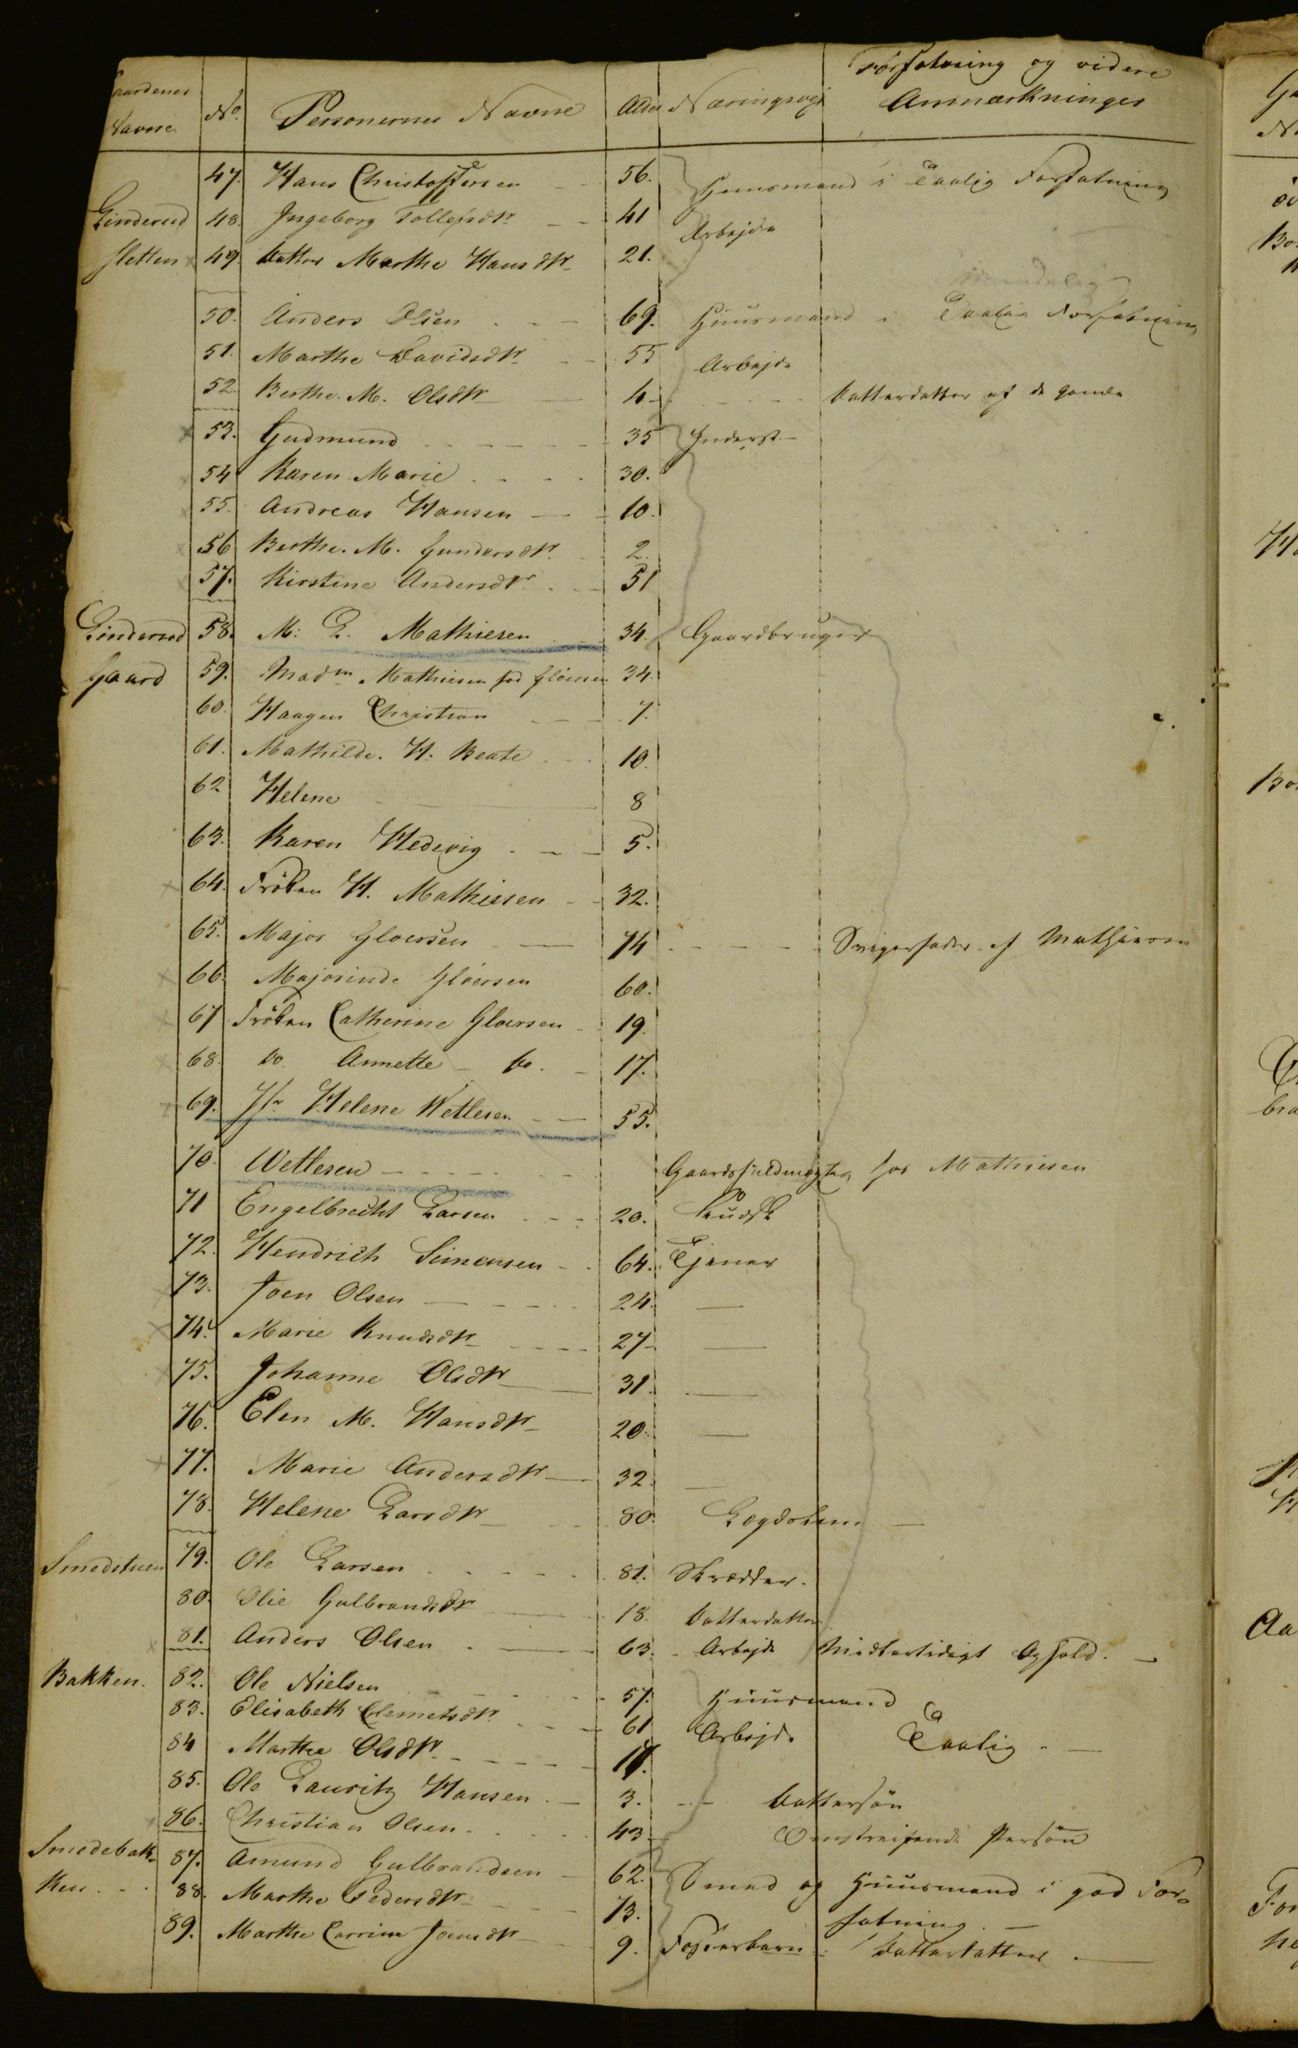 Gaardenes Navne No. Personernes Navne Alder Næringsvej Forfatning og videre Anmærkninger
47. Hans Christoffersen 56. Huusmand i Taalig Forfatning
Linderud 48. Ingeborg Tollefsdtr 41 Arbejde
sletten 49 datter Marthe Hansdtr 21.
50. Anders Olsen 69. Huusmand i Taalig Forfatning
51. Marthe Davidsdtr 55 Arbejde
52. Berthe. M. Olsdtr 4 Datterdatter af de gamle
53. Gudmund 35 Inderst
54 Karen Marie 30.
55. Andreas Hansen 10.
56 Berthe. M. Gundersdtr. 2.
57. Kirstine Andersdtr. 51
Linderud 58. M: L. Mathiesen 34. Gaardbruger
Gaard 59. Madm Mathiesen fød Gløersen 34.
60. Haagen Christian 7.
61. Mathilde. H. Beate 10.
62 Helene 8
63. Karen Hedevig 5.
64. Frøken H. Mathiesen 32.
65. Major Gløersen 74 Svigerfader af Mathiesen
66. Majorinde Gløersen 60.
67 Frøken Catherine Gloersen 19.
68. do. Annette do. 17.
69. Jfr Helene Wetlesen 55.
70. Wetlesen Gaardsfuldmægtig hos Mathiesen
71 Engelbrecht Larsen 20. Kudsk
72. Hendrich Simensen 64. Tjener
73. Joen Olsen 24. —
74. Marie Knudsdtr 27 —
75. Johanne Olsdtr 31. —
76. Elen M. Hansdtr 20. —
77. Marie Andersdtr 32. —
78. Helene Larsdtr 80. Lægdslem
Smedstuen 79. Ole Larsen 81. Skrædder.
80. Olie Gulbrandsdtr 18. Datterdatter
81. Anders Olsen 63. Arbejde Midlertidigt Ophold.
Bakken. 82. Ole Nielsen 57. Huusmand
83. Elisabeth Clemetsdtr. 61 Arbejde Taalig
84 Marthe Olsdtr. 17.
85. Ole Lauritz Hansen 3. Dattersøn
86. Christian Olsen 43 Omstreifende Person
Smedebak- 87. Amund Gulbrandsen 62. Smed og Huusmand i god For-
ken. 88. Marthe Pedersdtr 73. fatning.
89. Marthe Joensdtr 9. Fosterbarn Datterdatter